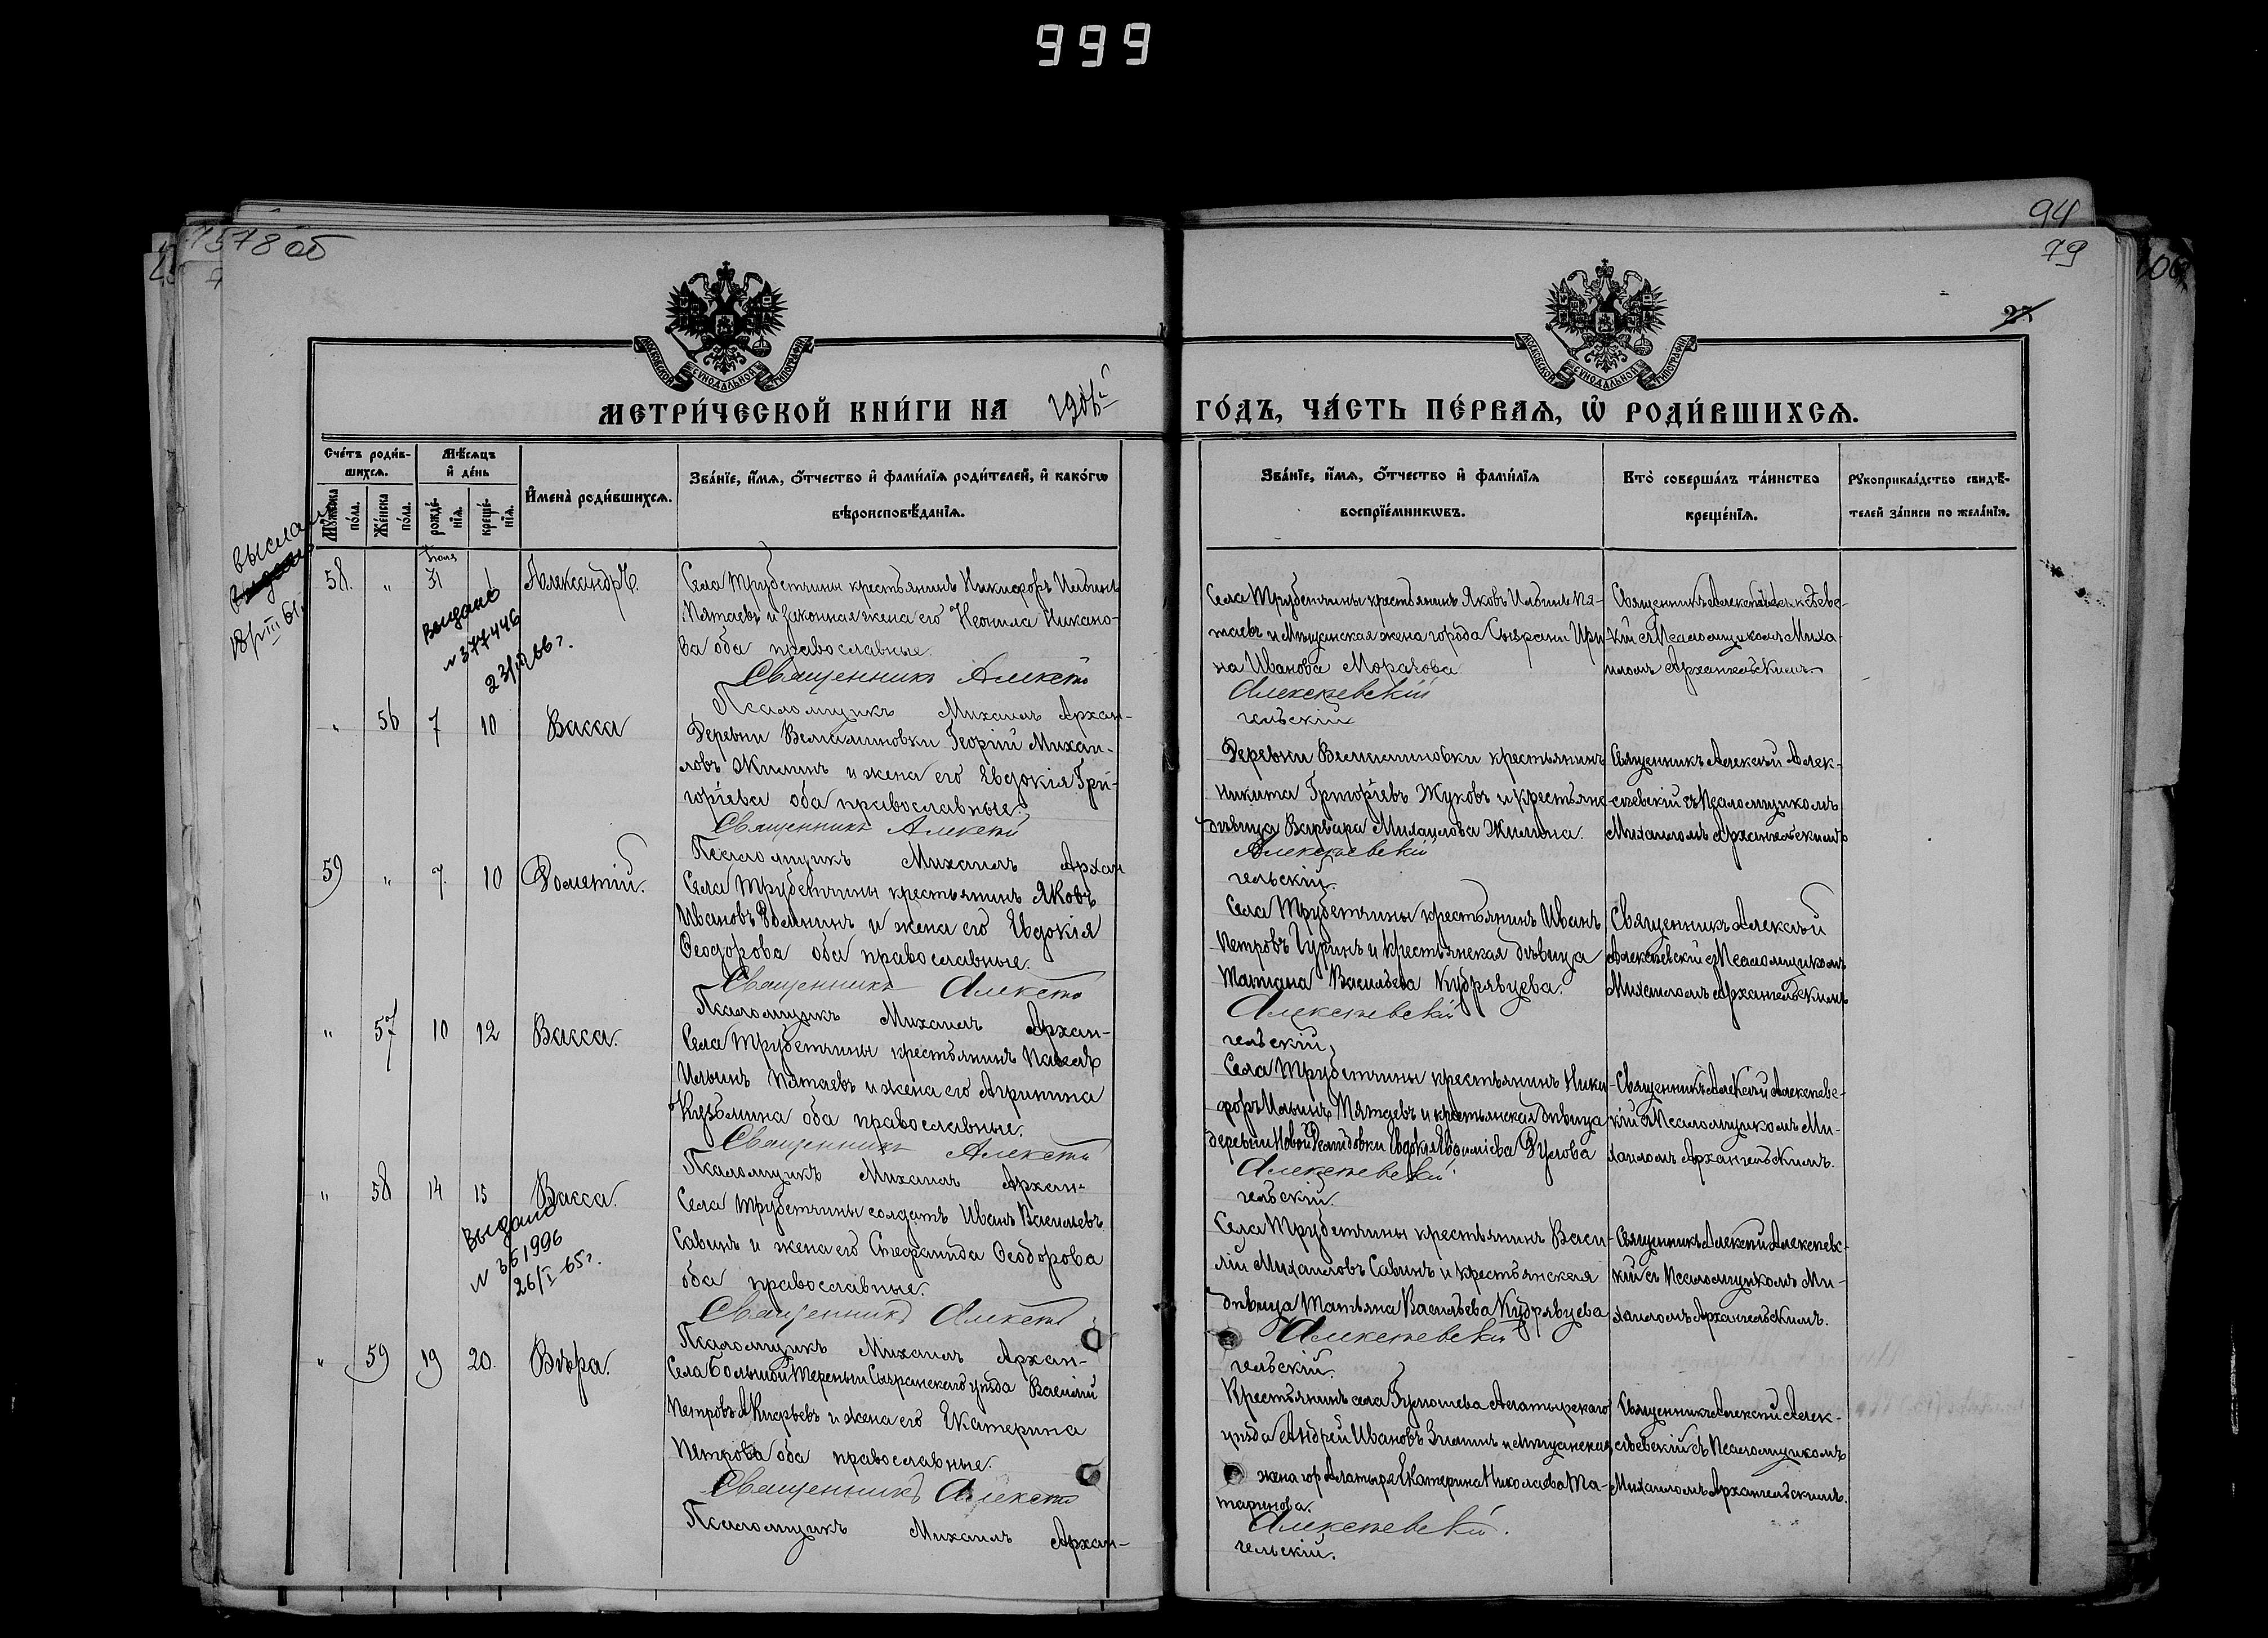 999
94
1578 об
79
27
МОСКОВСКОЙ СѴНОДАЛЬНОЙ ТИПОГРАФІИ
МОСКОВСКОЙ СѴНОДАЛЬНОЙ ТИПОГРАФІИ
МЕТРИ́ЧЕСКОЙ КНИ́ГИ НА 1906й ГО́ДЪ, ЧА́СТЬ ПЕ́РВАѦ, Ѡ҆ РОДИ́ВШИХСѦ.
Сче́тъ роди́в-
шихсѧ.
Мꙋ́жеска по́ла.
Же́нска по́ла.
Мѣ́сѧцъ
и҆ де́нь
рожде́-
нїѧ.
креще́-
нїѧ.
И҆мена̀ роди́вшихсѧ.
Зва́нїе, и҆́мѧ, ѻ҆́тчество и҆ фами́лїѧ роди́телей, и҆ како́гѡ
вѣроисповѣ́данїѧ.
Зва́нїе, и҆́мѧ, ѻ҆́тчество и҆ фами́лїѧ
воспрїе́мникѡвъ.
Кто̀ соверша́лъ та́инство
креще́нїѧ.
Рꙋкоприкла́дство свидѣ́-
телей за́писи по жела́нїю.
выслано
18/VIII 61г
58. " Іюля 31 1 Александръ.
Выдано
№ 377446
23/IV 66г.
Села Трубетчины крестьянинъ Никифоръ Ильинъ
Пятаевъ и законная жена его Неонила Никано-
ва оба православные.
Священникъ Алексѣй
Псаломщикъ Михаилъ Архан-
Села Трубетчины крестьянинъ Яковъ Ильинъ Пя-
таевъ и Мѣщанская жена города Сызрани Ири-
на Иванова
Алексѣевскій
гельскій
Священникъ Алексѣй Алексѣев-
кій съ Псаломщикомъ Миха-
иломъ Архангельскимъ.
" 56 7 10 Васса
Деревни Вельяминовки Георгій Михаи-
ловъ Жилинъ и жена его Евдокія Гри-
горіева оба православные.
Священникъ Алексѣй
Псаломщикъ Михаилъ Архан
Деревни Вельяминовки крестьянинъ
Никита Григоріевъ Жуковъ и крестьянс.
дѣвица Варвара Михаилова Жилина.
Алексѣевскій
гельскій.
Священникъ Алексѣй Алек-
сѣевскій съ Псаломщикомъ
Михаиломъ Архангельскимъ
59 " 7. 10 Дометій.
Села Трубетчины крестьянинъ Яковъ
Ивановъ и жена его Евдокія
Ѳеодорова оба православные.
Священникъ Алексѣй
Псаломщикъ Михаилъ Архан-
Села Трубетчины крестьянинъ Иванъ
Петровъ Гуринъ и крестьянская дѣвица
Татіана Васильева Кудрявцева.
Алексѣевскій
гельскій,
Священникъ Алексѣй
Алексѣевскій съ Псаломщикомъ
Михаиломъ Архангельскимъ
" 57 10 12 Васса.
Села Трубетчины крестьянинъ Павелъ
Ильинъ Пятаевъ и жена его Агрипина
Кузьмина оба православные.
Священникъ Алексѣй
Псаломщикъ Михаилъ Архан-
Села Трубетчины крестьянинъ Ники-
форъ Ильинъ Пятаевъ и крестьянская дѣвица
деревни Новой Евдокія
Алексѣевскій
гельскій.
Священникъ Алексѣй Алексѣев-
кій съ Псаломщикомъ Ми-
хаиломъ Архангельскимъ.
" 58 14 15 Васса.
Выдано
№ 361996
26/I-65г.
Села Трубетчины солдатъ Иванъ Васильевъ
Савинъ и жена его Стефанида Ѳеодорова
оба православные.
Священникъ Алексѣй
Псаломщикъ Михаилъ Архан-
Села Трубетчины крестьянинъ Васи-
лій Михаиловъ Савинъ и крестьянская
дѣвица Татьяна Васильева Кудрявцева
Алексѣевскій
гельскій.
Священникъ Алексѣй Алексѣевс-
кій съ Псаломщикомъ Ми-
хаиломъ Архангельскимъ.
" 59 19 20. Вѣра.
Села Большой Тереньги Сызранскаго уѣзда Василій
Петровъ и жена его Екатерина
Петрова оба православные.
Священникъ Алексѣй
Псаломщикъ Михаилъ Архан-
Крестьянинъ села Алатырскаго
уѣзда Андрей Ивановъ Зиминъ и мѣщанская
жена гор Алатыря Екатерина Николаева Та-
таринова.
Алексѣевскій.
гельскій.
Священникъ Алексѣй Алек-
сѣевскій съ Псаломщикомъ
Михаиломъ Архангельскимъ.